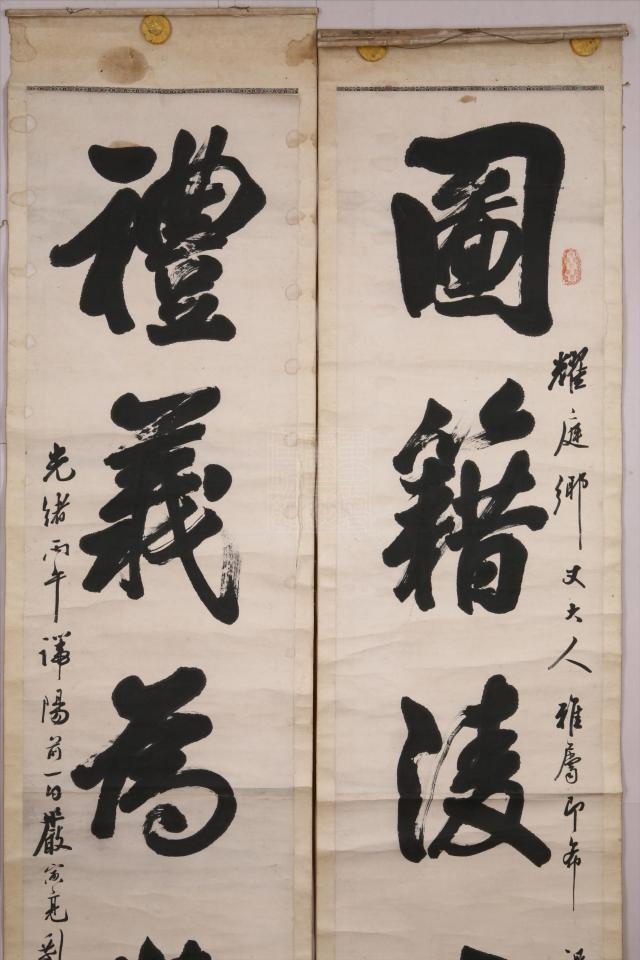 圖籍陵
耀庭鄉丈大人雅屬即希
禮義為
光緒丙午
陽前一日嚴寅亮